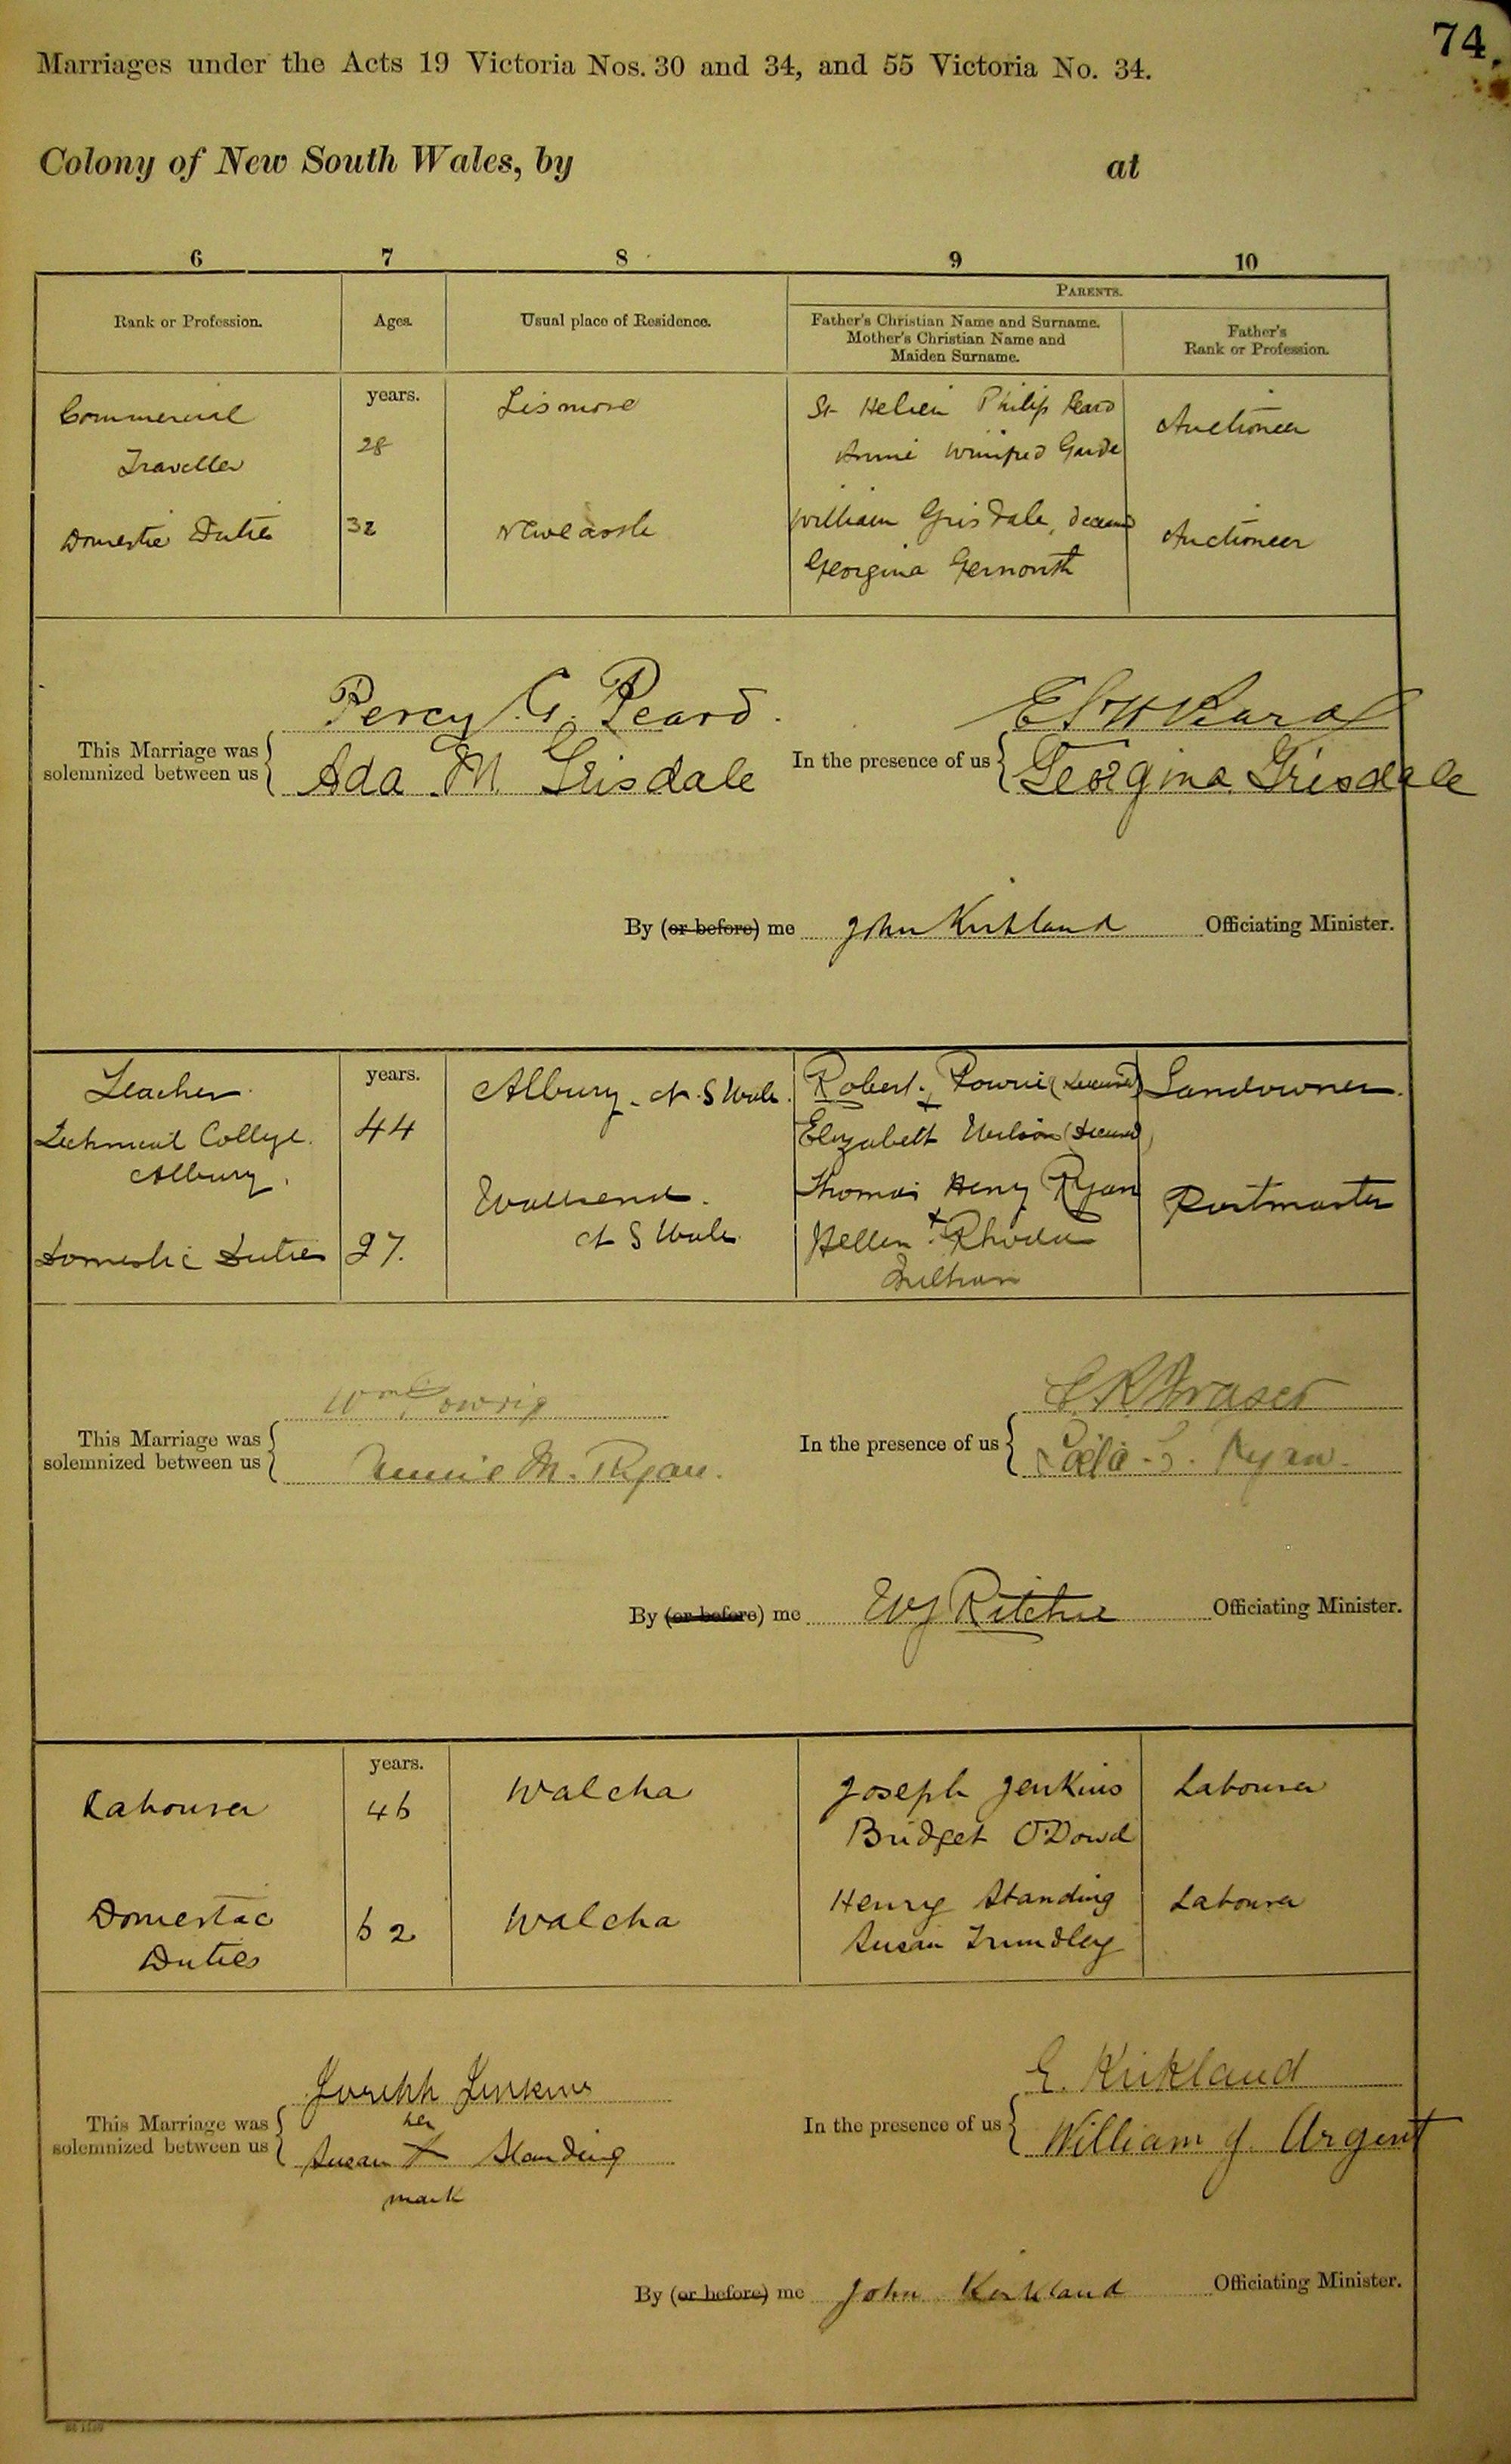 74.
Marriages under the Acts 19 Victoria Nos. 30 and 34, and 55 Victoria No. 34.
Colony of New South Wales, by at
6 7 8 9 10
PARENTS.
Rank or Profession. Ages. Usual place of Residence. Father's Christian Name and Surname. Mother's Christian Name and Maiden Surname. Father's Rank or Profession.
years.
Commercial Lismore St Helier Philip Peard Auctioneer
Traveller 28 Annie Winifred Garde
Domestic Duties 32 Newcastle William Grisdale, deceased Auctioneer
Georgina Gernonth
This Marriage was solemnized between us
Percy G. Peard.
Ada M. Grisdale
In the presence of us
Georgina Grisdale
By (or before) me John Kirkland Officiating Minister.
years.
Teacher Albury. N. S Wales. Robert Powrie (deceased) Landowner.
Technical College. 44 Elizabeth Wilson (deceased)
Albury.
Wallsend. Thomas Henry Ryan Postmaster
N S Wales Hellen Rhoda
Domestic Duties 27.
This Marriage was solemnized between us
Wm Powrie
Annie M. Ryan.
In the presence of us
Fraser
Ryan.
By (or before) me W J Ritchie Officiating Minister.
years.
Labourer 46 Walcha Joseph Jenkins Labourer
Bridget O'Dowd
Domestic 62 Walcha Henry Standing Labourer
Duties Susan Trundley
This Marriage was solemnized between us
Joseph Jenkins
her
Susan X Standing
mark
In the presence of us
E. Kirkland
William J. Argent
By (or before) me John Kirkland Officiating Minister.